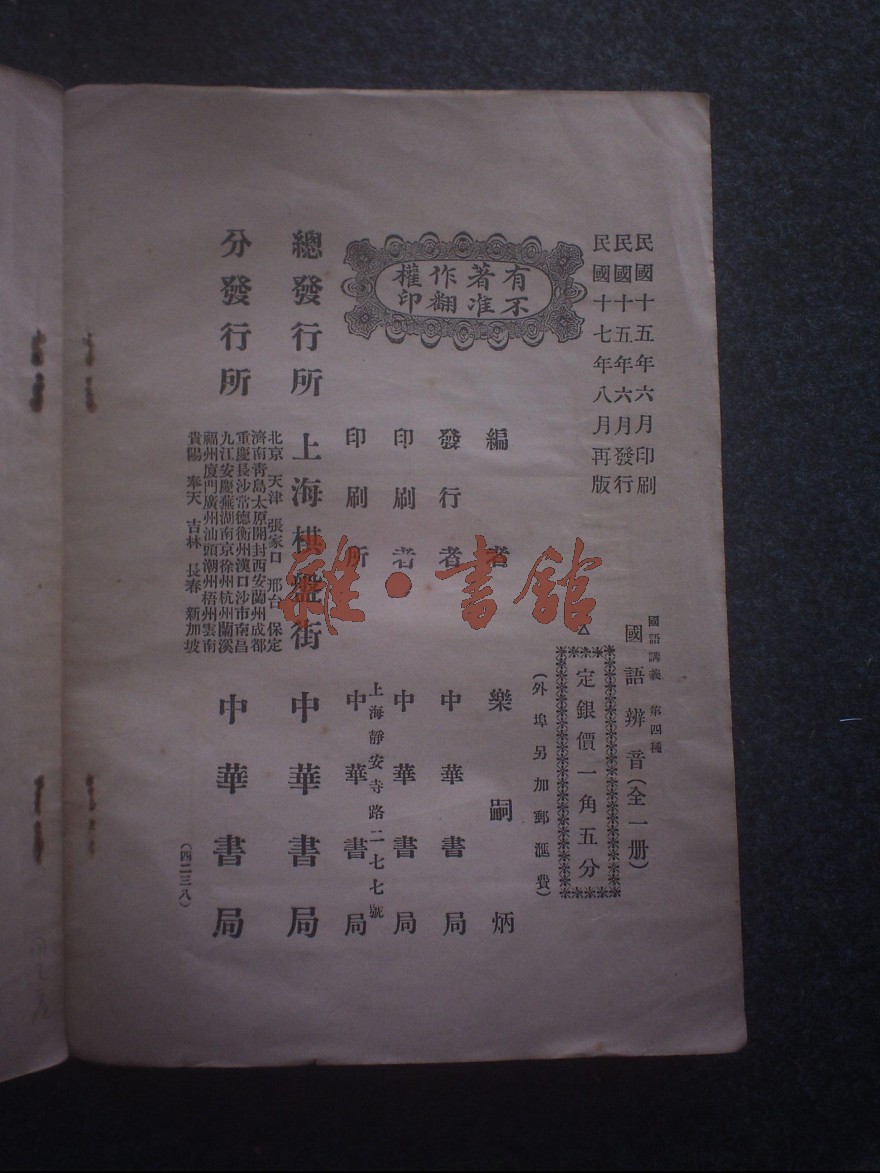 民國十五年六月印刷
民國十五年六月發行
民國十七年八月再版
有不著准作翻權印
國語講義 第四種
國語辨音(全一册)
定銀價一角五分
(外埠另加郵滙費)
編者 樂嗣炳
發行者 中華書局
印刷者 中華書局
上海靜安寺路二七七號
印刷所 中華書局
總發行所 上海棋盤街 中華書局
分發行所
北京 天津 張家口 邢台 保定
濟南青島太原開封西安蘭州成都
重慶長沙常德衡州漢口沙市南昌
九江安慶蕪湖南京徐州杭州蘭溪
福州廈門廣州汕頭潮州梧州雲南
貴陽 奉天 吉林 長春 新加坡
中華書局
(四二三八)
雜·書館